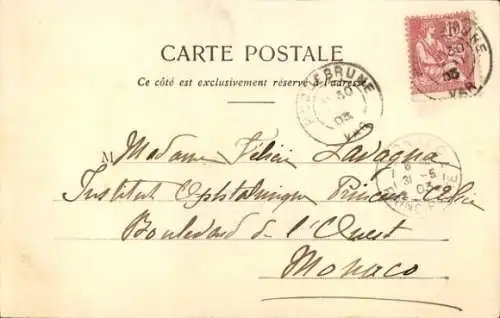 CARTE POSTALE
Ce côté est exclusivement réservé à l'adresse
M Madame Félicie Lavagna
Institut Ophtalmique Prince
Boulevard de l'Ouest
Monaco
30
03
VAR
10
30
03
VAR
31 -5
03